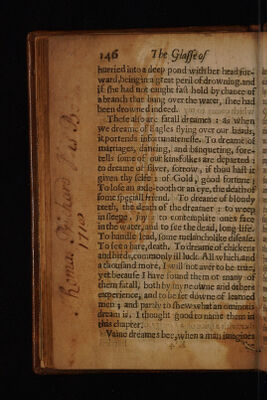 146 The Glasse of
hurried into a deep pond with her head for-
ward, being in a great peril of drowning, and
if she had not caught fast hold by chance of
a branch that hung over the water, shee had
been drowned indeed.
These also are fatall dreames : as when
we dreame of Eagles flying over our heads,
it portends infortunatenesse. To dreame of
marriages, dancing, and banquetting, fore-
tells some of our kinsfolkes are departed ;
to dreame of silver, sorrow, if thou hast it
given thy selfe : of Gold, good fortune ;
To lose an axle-tooth or an eye, the death of
some speciall friend. To dreame of bloudy
teeth, the death of the dreamer : to weep
in sleepe, joy : to contemplate ones face
in the water, and to see the dead, long life.
To handle lead, some melancholike disease.
To see a hare, death. To dreame of chickens
and birds, commonly ill luck. All which, and
a thousand more, I will not aver to be true,
yet because I have found them or many of
them fatall, both by myne owne and others
experience, and to be set downe of learned
men ; and partly to shew what an ominous
dream is, I thought good to name them in
this chapter.
Vaine dreames bee, when a man imagines
his B
1710